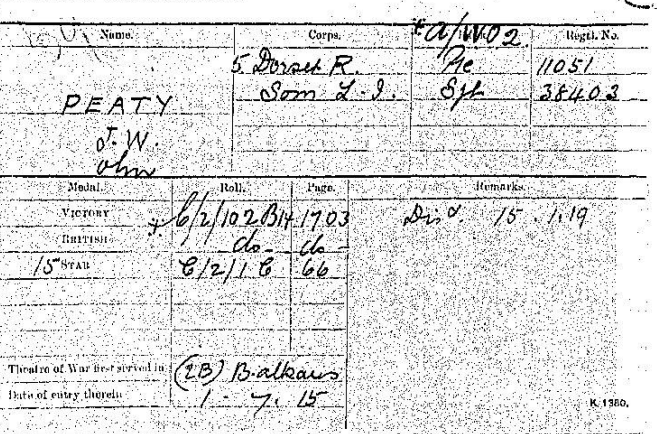 Name. Corps. Rank. Regtl. No.
+ a/WO2.
5 Dorset R. Pte 11051
PEATY Som L.I. Sjt 38403
J. W.
ohn
Medal. Roll. Page. Remarks.
VICTORY + C/2/102B14 1703 Disd. 15.1.19
BRITISH do- do-
15 STAR C/2/1C 66
Theatre of War first served in (2B) Balkans
Date of entry therein 1. 7. 15
K. 1380.